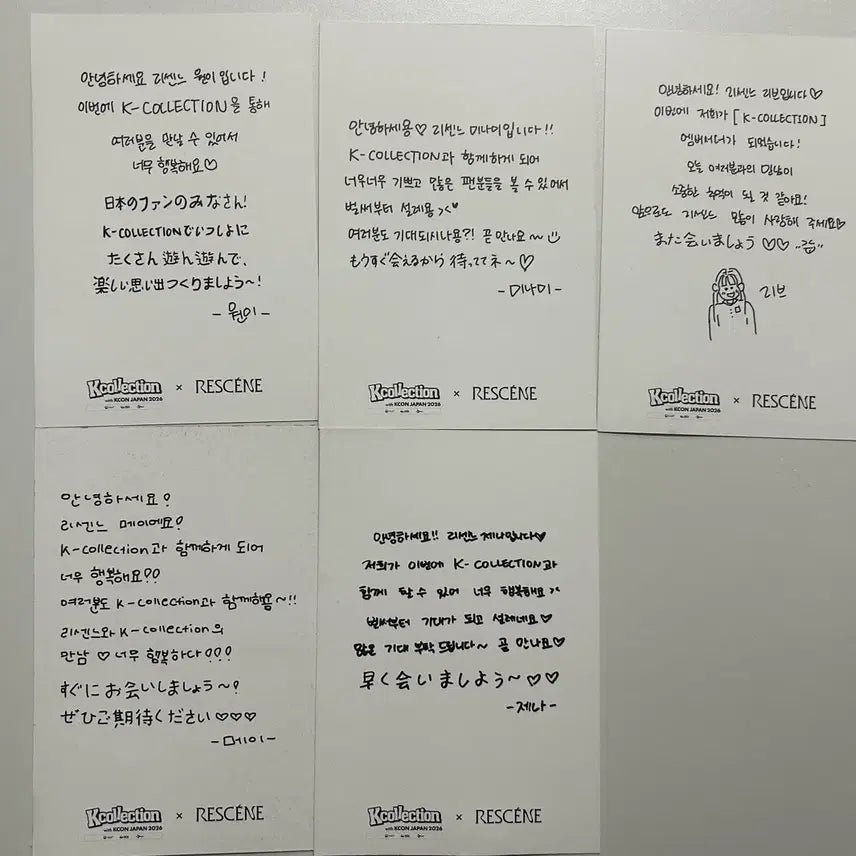 안녕하세요 리센느 원이입니다!
이번에 K-COLLECTION을 통해
여러분을 만날 수 있어서
너무 행복해요♡
日本のファンのみなさん!
K-COLLECTIONでいっしょに
たくさん遊ん遊んで、
楽しい思い出つくりましょう~!
-원이-
Kcollection × RESCÉNE
with KCON JAPAN 2026
안녕하세용♡ 리센느 미나미입니다!!
K-COLLECTION과 함께하게 되어
너무너무 기쁘고 많은 팬분들을 볼 수 있어서
벌써부터 설레용><♥
여러분도 기대되시나용?! 곧 만나요~
もうすぐ会えるから 待っててネ~♡
-미나미-
Kcollection × RESCÉNE
with KCON JAPAN 2026
안녕하세요! 리센느 리브입니다♡
이번에 저희가 [K-COLLECTION]
엠버서더가 되었습니다!
오늘 여러분과의 만남이
소중한 추억이 될 것 같아요!
앞으로도 리센느 많이 사랑해 주세요♡
また会いましょう♡♡
리브
Kcollection × RESCÉNE
with KCON JAPAN 2026
안녕하세요?
리센느 메이에요?
K-collection과 함께하게 되어
너무 행복해요??
여러분도 K-collection과 함께해용~!!
리센느와 K-collection의
만남 ♡ 너무 행복하다???
すぐにお会いしましょう~?
ぜひご期待ください♡♡♡
-메이-
Kcollection × RESCÉNE
with KCON JAPAN 2026
안녕하세요!! 리센느 제나입니다♥
저희가 이번에 K-COLLECTION과
함께 할 수 있어 너무 행복해요
벌써부터 기대가 되고 설레네요♥
많은 기대 부탁 드립니다~ 곧 만나요♥
早く会いましょう~♡♡
-제나-
Kcollection × RESCÉNE
with KCON JAPAN 2026